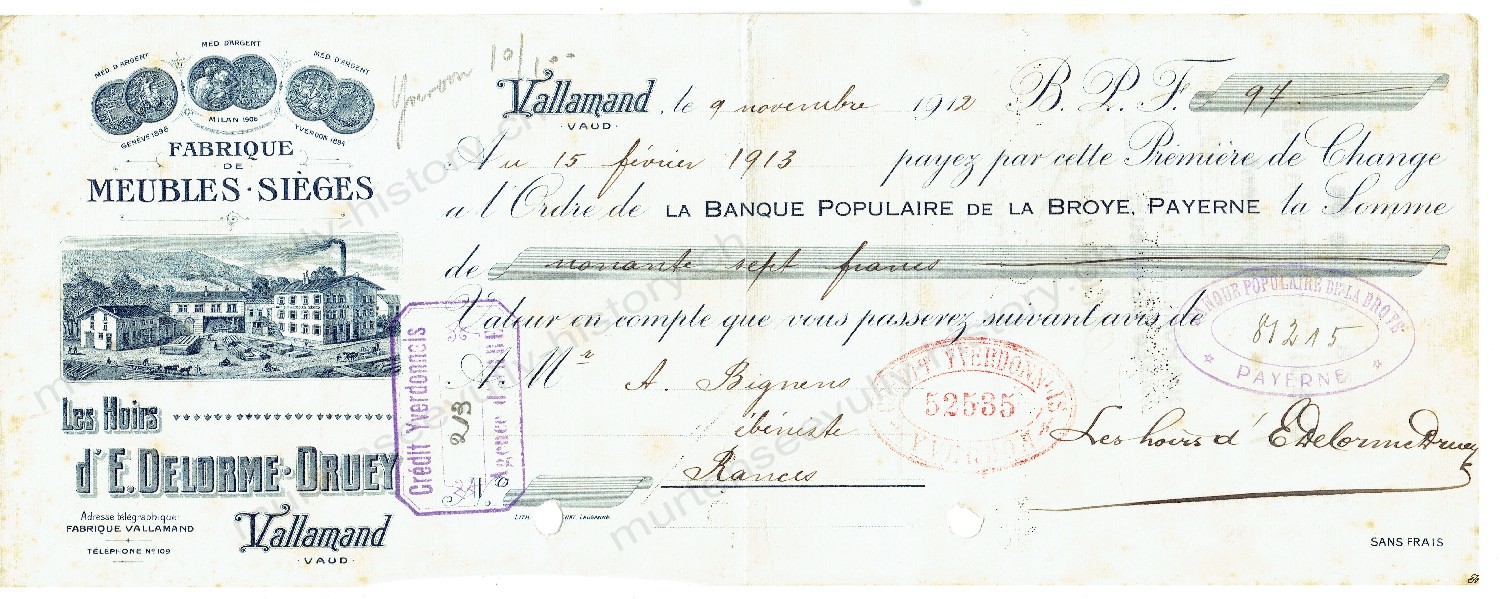 MED D'ARGENT
MED D'ARGENT
MED D'ARGENT
GENÈVE 1896
MILAN 1906
YVERDON 1894
FABRIQUE
DE
MEUBLES·SIÈGES
Les Hoirs
d'E. DELORME·DRUEY
Adresse télégraphique:
FABRIQUE VALLAMAND
TÉLÉPHONE Nº 109
Vallamand
·VAUD·
10/1
Vallamand, le 9 novembre 1912 B. P. F. 97.
·VAUD·
Au 15 février 1913 payez par cette Prémière de Change
a l'Ordre de LA BANQUE POPULAIRE DE LA BROYE, PAYERNE la Somme
de nonante sept francs
Valeur en compte que vous passerez suivant avis de
A Mr A. Bignens
ébéniste
Rances
Crédit Yverdonnois
213
Agence d'
YVERDONNOIS
52535
BANQUE POPULAIRE DE LA BROYE
81215
PAYERNE
Les hoirs d'E Delorme Druey
LITH. LAUSANNE
SANS FRAIS
murtensevully-history.ch
murtensevully-history.ch
murtensevully-history.ch